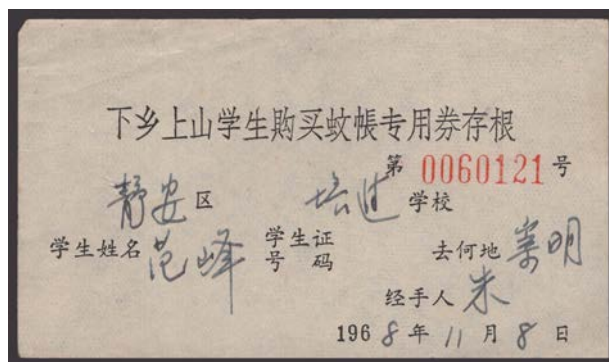 下乡上山学生购买蚊帐专用券存根
第 0060121 号
静安区 培进 学校
学生姓名 范峰 学生证号码 去何地 崇明
经手人 朱
1968年11月8日